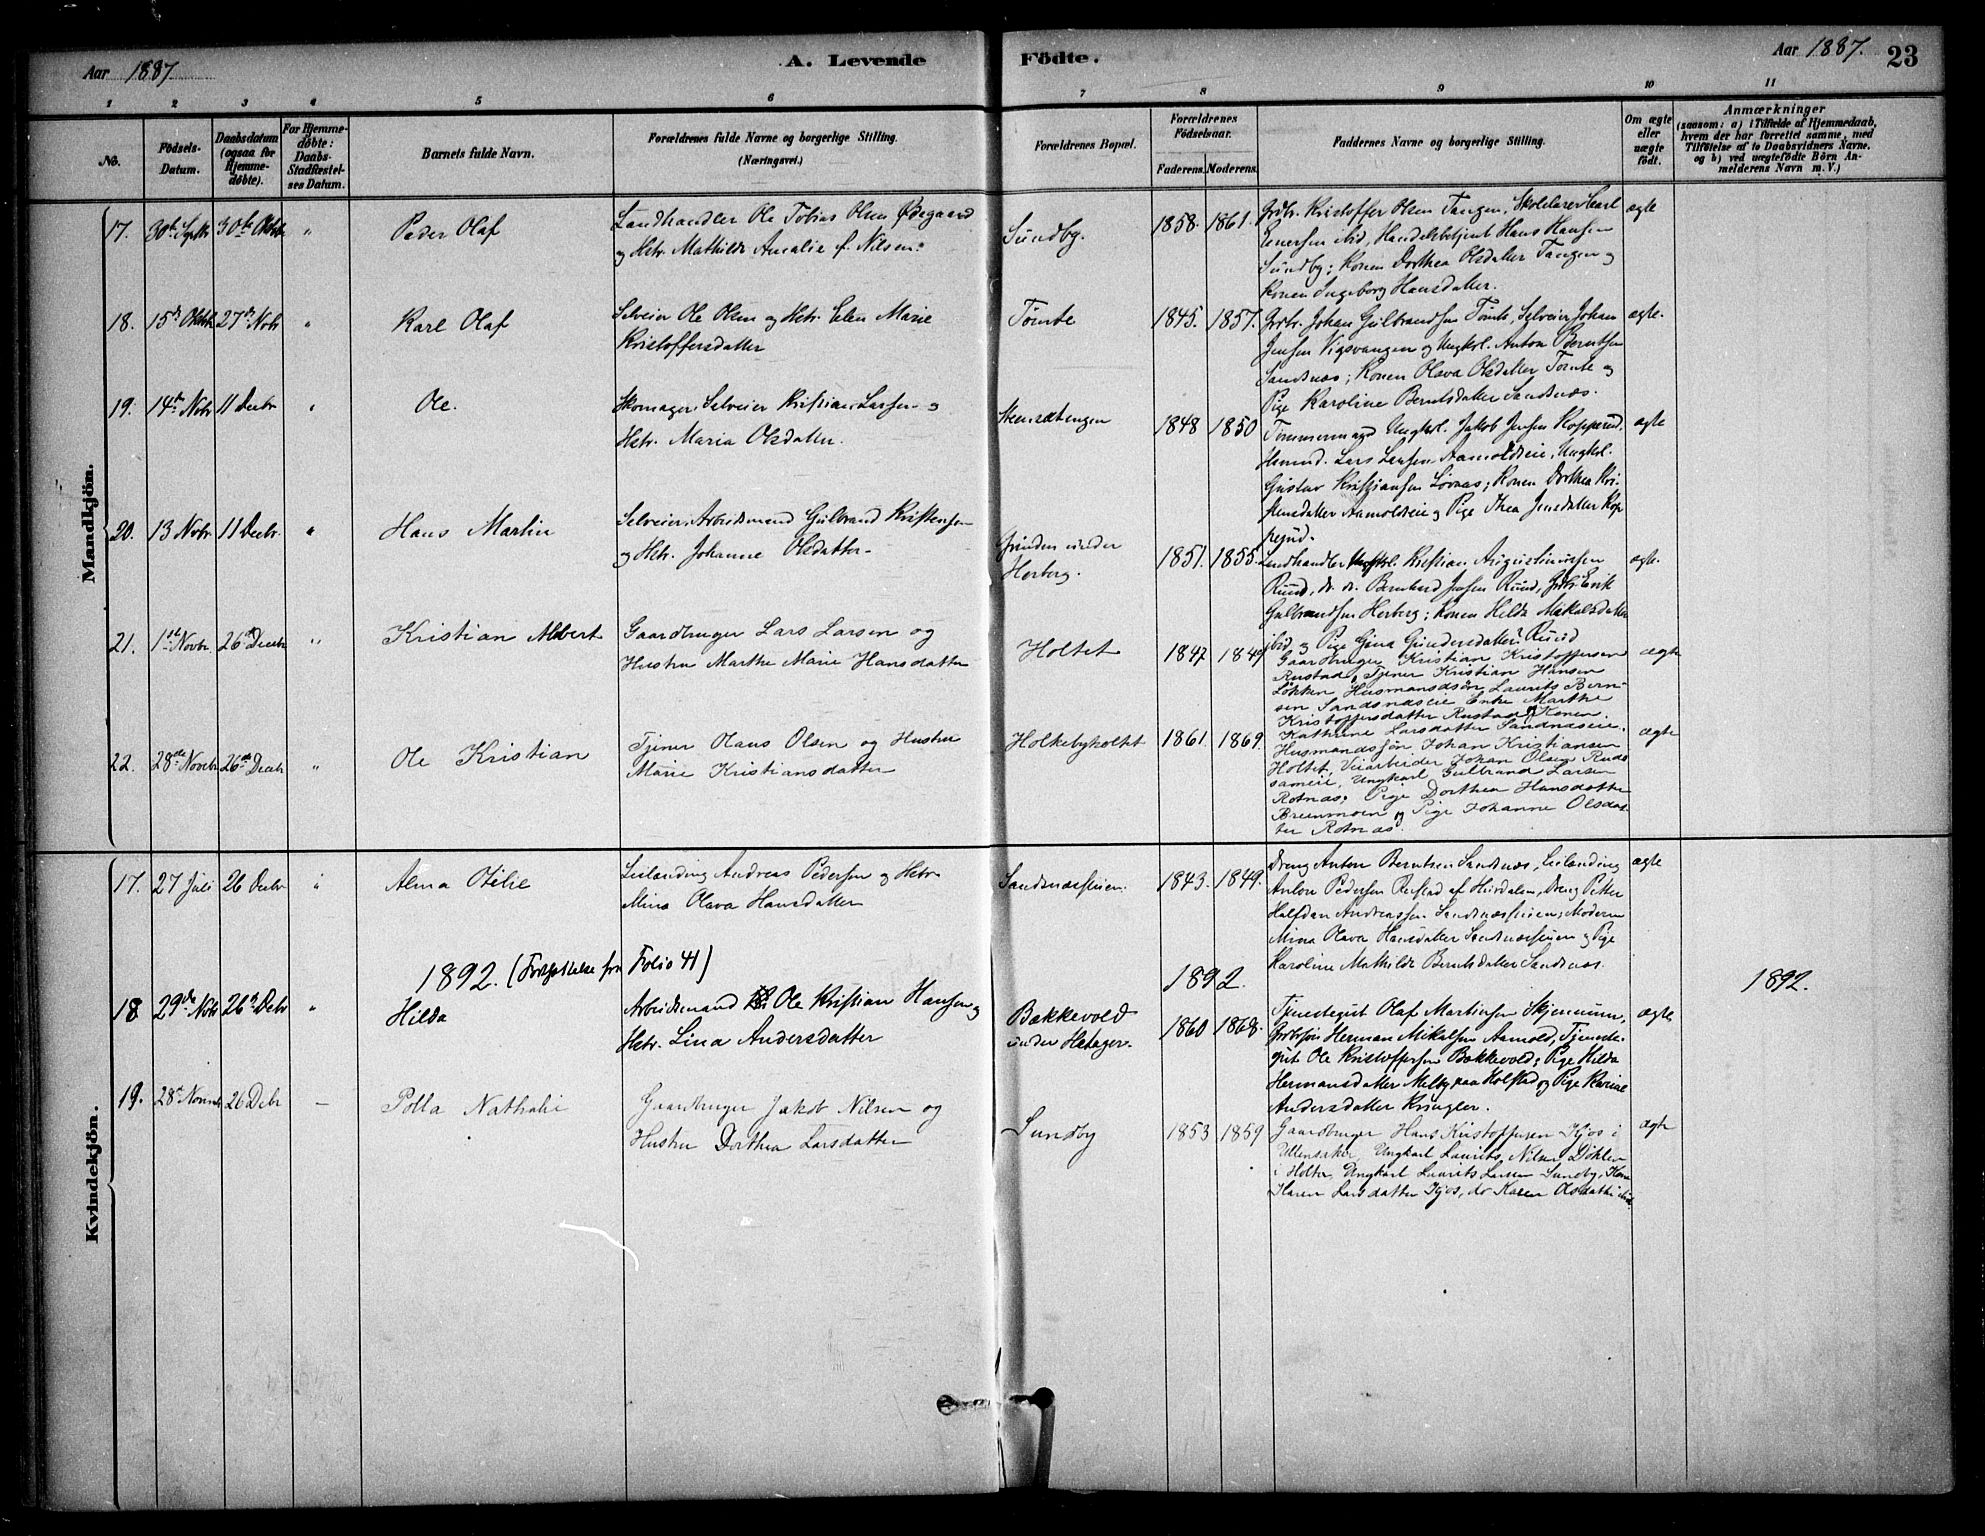 Aar 1887.
A. Levende
Födte.
Aar 1887.
23
1 2 3 4 5 6 7 8 9 10 11
No.
Födsels-
Datum.
Daabsdatum
(ogsaa for
Hjemme-
döbte).
For Hjemme-
döbte:
Daabs-
Stadfæstel-
ses Datum.
Barnets fulde Navn.
Forældrenes fulde Navne og borgerlige Stilling.
(Næringsvei.)
Forældrenes Bopæl.
Forældrenes
Födselsaar.
Faderens. Moderens.
Faddernes Navne og borgerlige Stilling.
Om ægte
eller
uægte
födt.
Anmærkninger
(saasom: a) i Tilfælde af Hjemmedaab,
hvem der har forrettet samme, med
Tilföielse af to Daabsvidners Navne,
og b) ved uægtefödte Börn An-
melderens Navn m. V.)
Mandkjön.
17. 30te Septbr 30te Oktbr " Peder Olaf
Landhandler Ole Tobias Olsen Ødegaard
og Hstr. Mathilde Amalie f. Nilsen.
Sundby.
1858. 1861.
Grdbr. Kristoffer Olsen Tangen, Skolelærer Carl
Einersen ibid, Handelsbetjent Hans Hansen
Sundby; Konen Dorthea Olsdatter Tangen og
Konen Ingeborg Hansdatter.
ægte
18. 15de Oktbr 27de Novbr " Karl Olaf
Selveier Ole Olsen og Hstr. Elen Marie
Kristoffersdatter
Tömte
1845. 1857.
Grdbr. Johan Gulbrandsen Tömte, Selveier Johan
Jensen Vigsvangen og Ungkrl. Anton Berntsen
Sandsnæs; Konen Olava Olsdatter Tömte og
Pige Karoline Berntsdatter Sandsnæs.
ægte.
19. 14de Novbr 11 Decbr " Ole.
Skomager, Selveier Kristian Larsen og
Hstr. Maria Olsdatter.
Stensætengen
1848 1850
Tömmermand Ungkrl. Jakob Jensen Kopperud,
Husmd. Lars Larsen Aamoldseie, Ungkrl.
Gustav Kristiansen Lövnæs; Konen Dorthea Kri-
stensdatter Aamoldseie og Pige Thea Jensdatter Kop-
perud.
ægte
20. 13 Novbr 11 Decbr. " Hans Martin
Selveier, Arbeidsmand Gulbrand Kristensen
og Hstr. Johanne Olsdatter.
Grinden under
Herberg.
1851. 1855.
Landhandler Ungkrl. Kristian Augustinussen
Ruud, do. do. Bernhard Jensen Ruud, Grdbr. Erik
Gulbrandsen Herberg; Konen Hilda Mikalsdatter
ibid og Pige Gina Gundersdatter Ruud
ægte.
21. 1ste Novbr. 26de Decbr " Kristian Albert
Gaardbruger Lars Larsen og
Hustru Marthe Marie Hansdatter
Holtet
1847 1849
Gaardbruger Kristian Kristoffersen
Rustad, Tjener Kristian Hansen
Løkken Husmandssøn Laurits Bern-
sen Sandsnæseie Enke Marthe
Kristoffersdatter Rustad og Konen
Kathrine Larsdatter Sandnæseie.
ægte
22. 28de Novbr 26de Decbr " Ole Kristian
Tjener Olaus Olsen og Hustru
Marie Kristiansdatter
Holkebyholtet
1861. 1869.
Husmandssøn Johan Kristiansen
Holtet, Veiarbeider Johan Olsen Ruds-
sameie, Ungkarl Gulbrand Larsen
Rotnæs; Pige Dorthea Hansdatter
Breenmoen og Pige Johanne Olsdat-
ter Rotnæs.
ægte
Kvindekjön.
17. 27 Juli 26 Decbr " Alma Otilie
Leilænding Andreas Pedersen og Hstr.
Mina Olava Hansdatter
1843. 1849.
Dreng Anton Berntsen Sandsnæs, Leilænding
Anton Pedersen Rustad af Hurdalen, Dreng Petter
Halfdan Andreassen Sandsnæsstuen; Moderen
Mina Olava Hansdatter Sandsnæsstuen og Pige
Karoline Mathilde Berntsdatter Sandsnæs.
ægte
1892. (Fortsættelse fra Folio 41)
1892.
1892.
18 29de Novbr 26de Decbr " Hilda
Arbeidsmand Ole Kristian Hansen og
Hstr. Lina Andersdatter
Bækkevold
under Hetager.
1860 1868.
Tjenestegut Olaf Martinsen Skjennum,
Grdbrsön Herman Mikalsen Aamold, Tjeneste-
gut Ole Kristoffersen Bækkevold; Pige Hilda
Hermansdatter Melby paa Holstad og Pige Karine
Andersdatter Kringler.
ægte
19. 28de Novmbr 26 Decbr — Polla Nathalie
Gaardbruger Jakob Nilsen og
Hustru Dorthea Larsdatter
Sundby
1853 1859
Gaardbruger Hans Kristoffersen Kjos i
Ullensaker, Ungkarl Laurits Nilsen Døhlen
i Holter, Ungkarl Laurits Larsen Sundby, Kone
Karen Larsdatter Kjos, do Karen Olsdatter ibid.
ægte